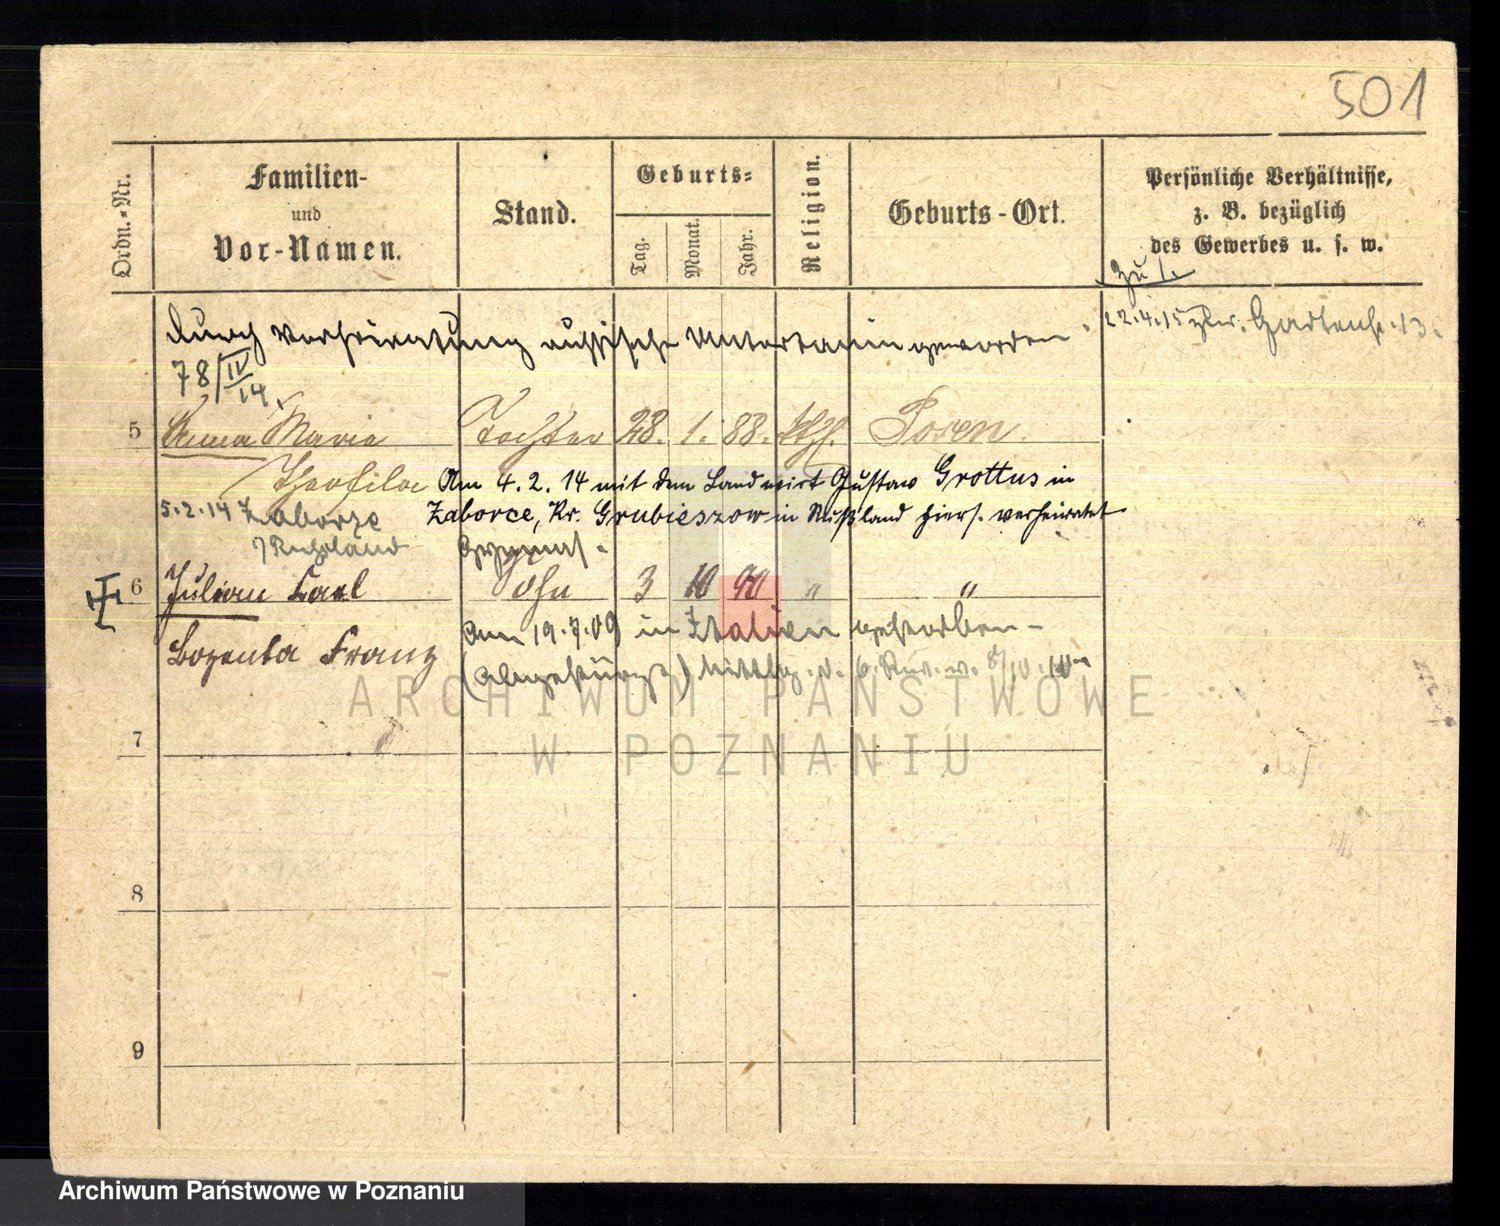 501
Ordn.-Nr.
Familien-
und
Vor-Namen.
Stand.
Geburts-
Tag.
Monat.
Jahr.
Religion.
Geburts-Ort.
Persönliche Verhältnisse,
z. B. bezüglich
des Gewerbes u. s. w.
zu 1.
durch Verheiratung russische Untertanin geworden.
22.4.15 Gartenstr. 13.
78/IV/14.
5 Anna Marie Tochter 28. 1. 88. kth. Posen.
Theofila Am 4. 2. 14 mit dem Landwirt Gustaw Grottus in
5.2.14 Zaborze Zaborce, Kr. Grubieszow in Rußland hiers. verheiratet
/Russland
6 Julian Karl Sohn 3 10 90 " "
Bozenta Franz Am 19.7.09 in Italien gestorben -
(abgestürzt) 6. Rev. 8/10.
7
8
9
ARCHIWUM PAŃSTWOWE
W POZNANIU
Archiwum Państwowe w Poznaniu